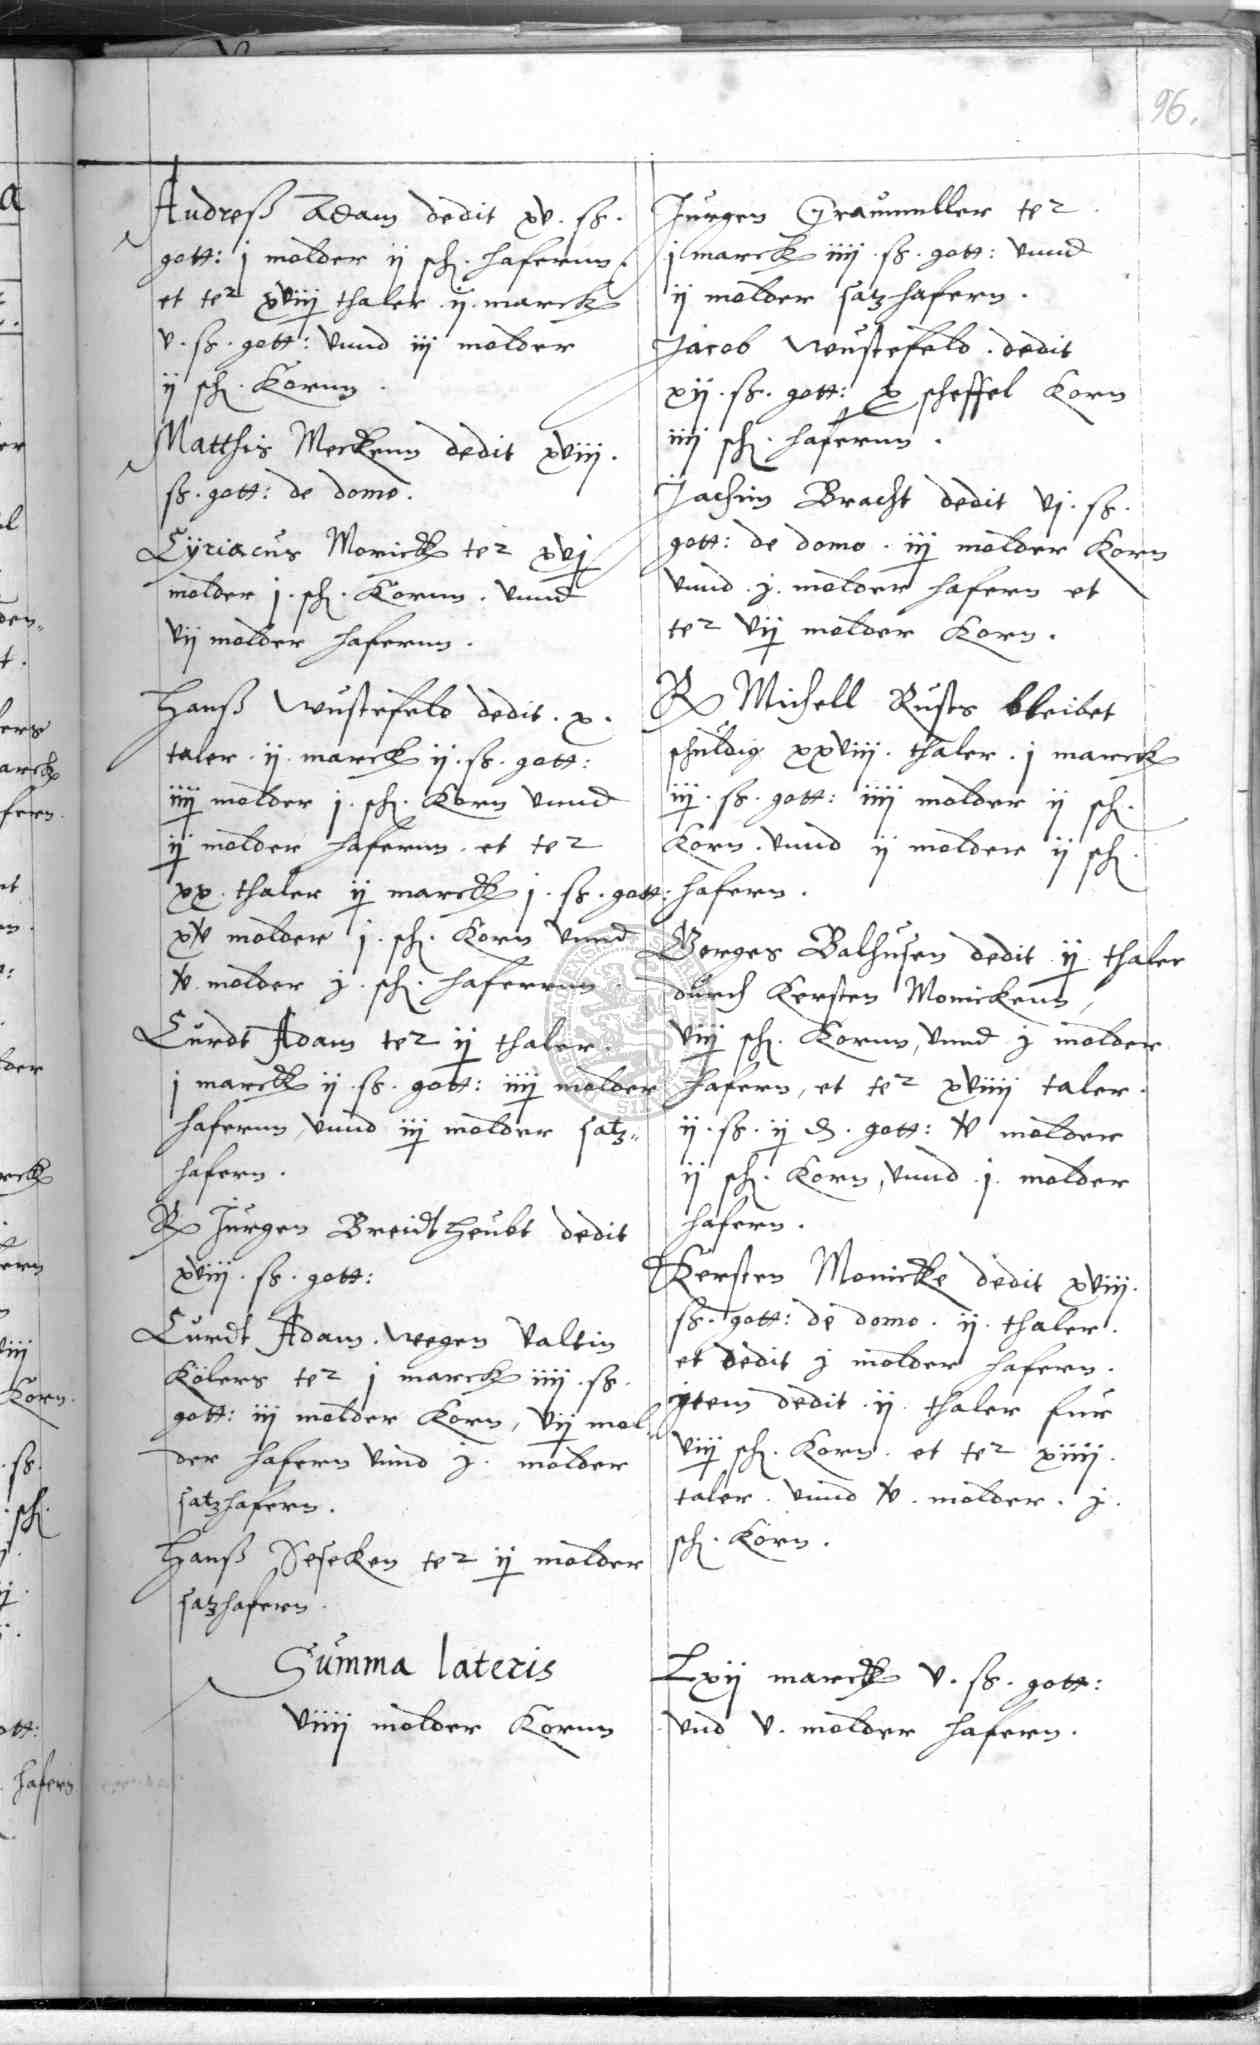 96.
Andreß Adam dedit xv. ß.
gott: j molder ij sch. haferun.
et ter xviij thaler ij. marck
v. ß. gott: vnnd iij molder
ij sch. Kornn.
Matthis Meckenn dedit xviij.
ß. gott: de domo.
Cyriacus Monick ter xvj
molder j. sch. Kornn. vnnd
vij molder hafernn.
Hanß Wustefeld dedit. x.
taler. ij. marck ij. ß. gott:
iiij molder j. sch. Korn vnnd
ij molder hafernn. et ter
xx. thaler ij marck j. ß. gott:
xv molder j. sch. Korn vnnd
v. molder j. sch. hafernn.
Curdt Adam ter ij thaler.
j marck ij. ß. gott: iiij molder
hafernn, vnnd iij molder satz„
hafern.
R Jurgen Breidtheubt dedit
xviij. ß. gott:
Curdt Adam. wegen Valtin
Kölers ter j marck iiij. ß.
gott: iij molder Korn, vij mol„
der hafern vnnd j. molder
satzhafern.
Hanß Seseken ter ij molder
satzhafern.
Summa lateris
viiij molder Kornn
Jurgen Graumuller ter.
j marck iiij. ß. gott: vnnd
ij molder satzhafern.
Jacob Wustefeld. dedit
xij. ß. gott: x scheffel Korn
iiij sch. hafernn.
Jachim Bracht dedit vj. ß.
gott: de domo. iij molder Korn
vnnd. j. molder hafern et
ter vij molder Korn.
R Michell Rusts bleibet
schuldig xxviij. thaler. j marck
iij. ß. gott: iiij molder ij sch.
Korn. vnnd ij molder ij sch.
hafern.
Gorges Balhusen dedit ij thaler
durch Kersten Monickenn,
viij sch. Kornn, vnnd j molder
hafern, et ter xviiij taler.
ij. ß. ij d. gott: v molder
ij sch. Korn, vnnd. j. molder
hafern.
Kersten Monicke dedit xviij.
ß. gott: de domo. ij. thaler.
et dedit j molder hafern.
jtem dedit. ij. thaler fur
viij sch. Korn. et ter xiiij.
taler. vnnd v. molder. j.
sch. Korn.
Lxij marck v. ß. gott:
vnd v. molder hafern.